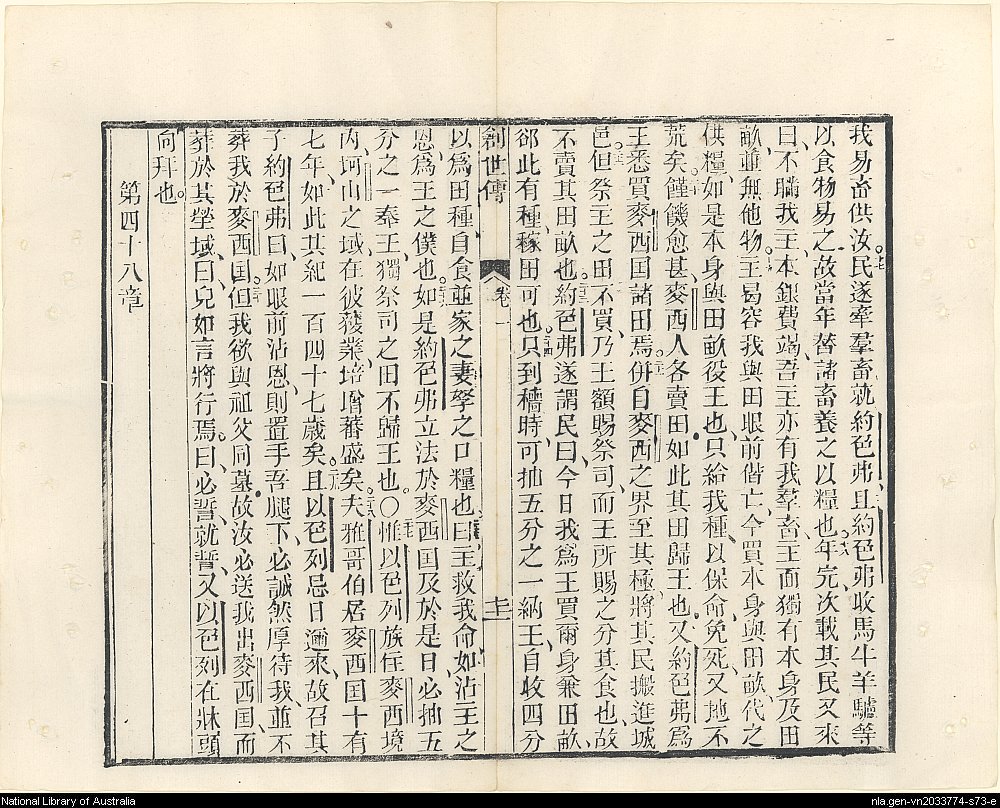 我易畜供汝民遂牽羣畜就約色弗且約色弗收馬牛羊驢等
以食物易之故當年替諸畜養之以糧也年完次載其民又來
曰不瞞我王本銀費竭吾王亦有我羣畜王面獨有本身及田
畝並無他物王曷容我與田眼前偕亡今買本身與田畝代之
供糧如是本身與田畝役王也只給我種以保命免死又地不
荒矣饉饑愈甚麥西人各賣田如此其田歸王也又約色弗爲
王悉買麥西国諸田焉併自麥西之界至其極將其民搬進城
邑但祭王之田不買乃王額賜祭司而王所賜之分其食也故
不賣其田畝也約色弗遂謂民曰今日我爲王買爾身兼田畝
郤此有種稼田可也只到穡時可抽五分之一納王自收四分
創世傳 卷一
以爲田種自食並家之妻孥之口糧也曰主救我命如沾王之
恩爲王之僕也如是約色弗立法於麥西国及於是日必抽五
分之一奉王獨祭司之田不歸王也〇惟以色列族住麥西境
内坷山之域在彼獲業培增蕃盛矣夫雅哥伯居麥西国十有
七年如此其紀一百四十七歲矣且以色列忌日邇來故召其
子約色弗曰如眼前沾恩則置手吾腿下必誠然厚待我並不
葬我於麥西国但我欲與祖父同墓故汝必送我出麥西国而
葬於其塋域曰兒如言將行焉曰必誓就誓又以色列在牀頭
向拜也
第四十八章